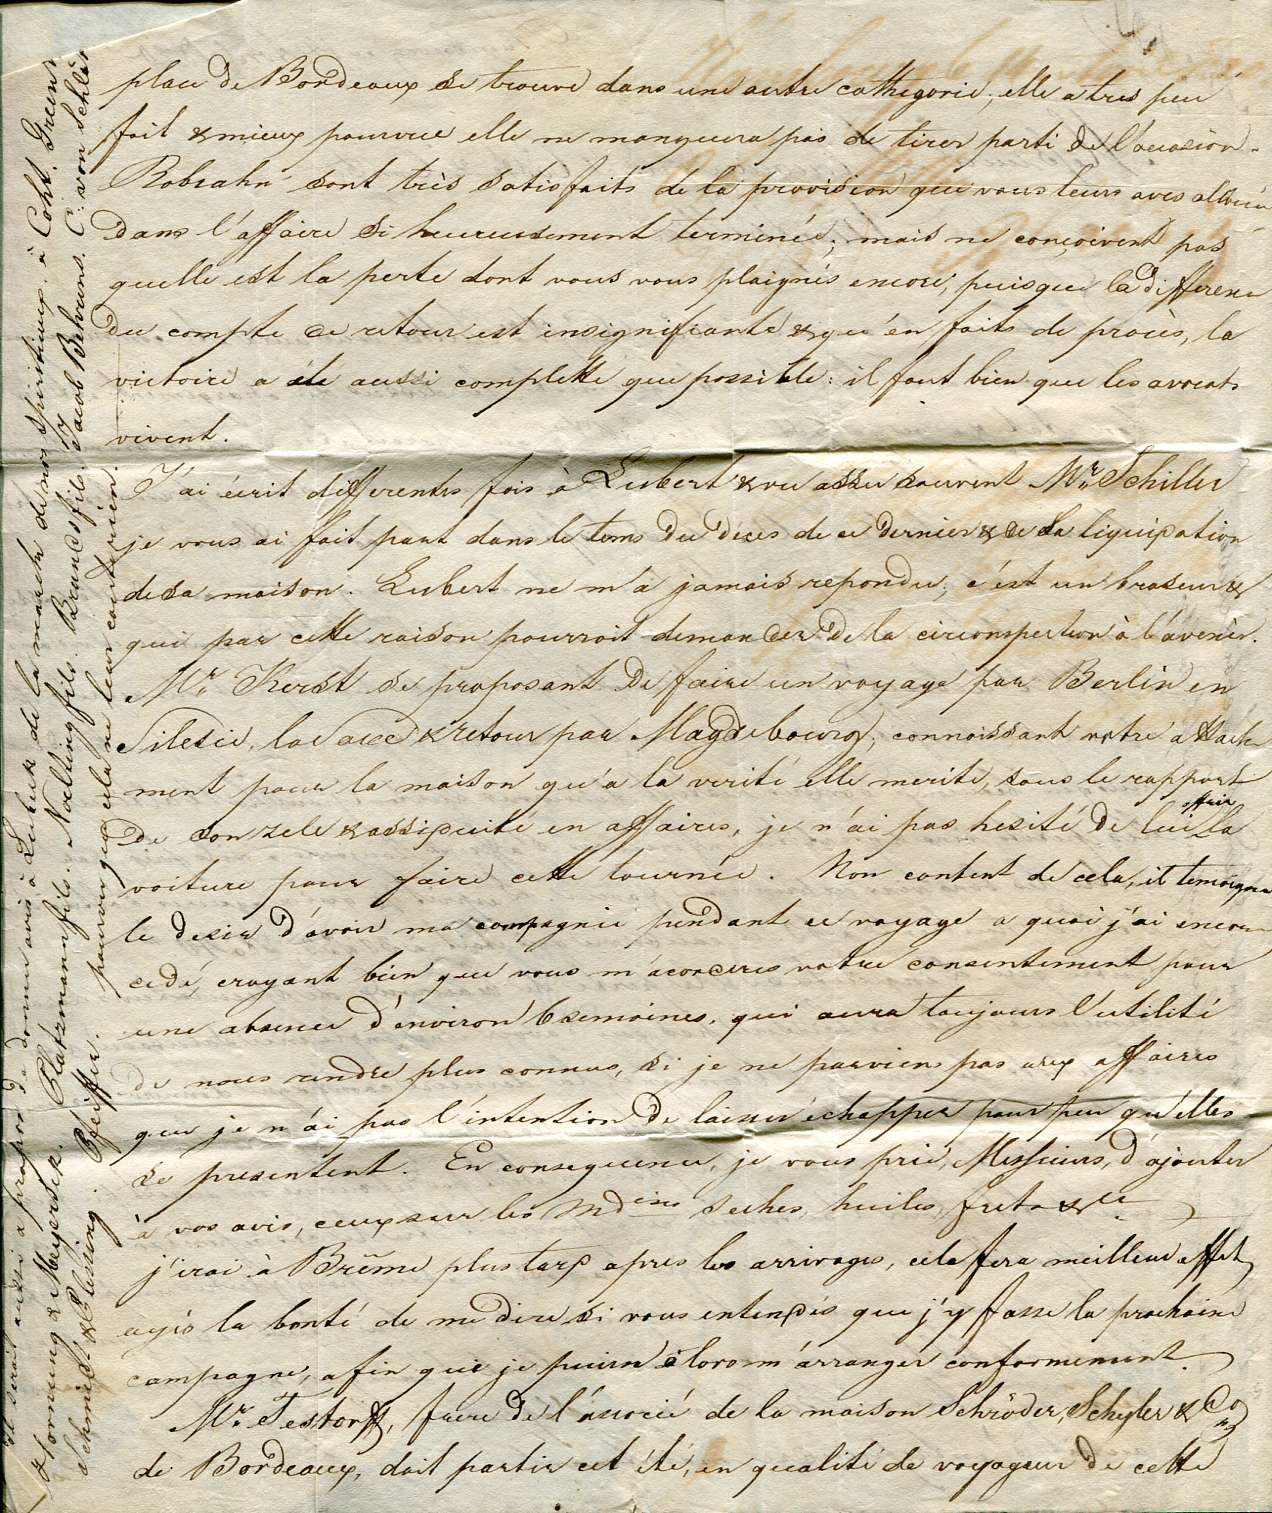 place de Bordeaux se trouve dans une autre cathegorie; elle a tres peu
fait & mieux pourvue elle ne manquera pas de tirer parti de l'occasion.
Robrahn sont très satisfaits de la provision que vous leurs avés alloué
dans l'affaire si heureusement terminée; mais ne conçoivent pas
quelle est la perte dont vous vous plaignés encore, puisque la differenc
du compte de retour est insignifiante & qu'en faits de procès, la
victoire a été aussi complette que possible: il faut bien que les avocats
vivent.
J'ai écrit differentes fois à Lubert & vu assés souvent Mr. Schiller
je vous ai fait part dans le tems du deces de ce dernier & de la liquidation
de sa maison. Lubert ne m'a jamais repondu, c'est un braseur &
qui par cette raison pourrait demander de la circonspection à l'avenir.
Mr. Kerst se proposant de faire un voyage par Berlin en
Silesie, la Saxe & retour par Magdebourg, connoissant votre attache
ment pour la maison qu'à la verité elle merite, sous le rapport
de son zele & assiduité en affaires, je n'ai pas hesité de lui offrir la
voiture pour faire cette tournée. Non content de cela, il temoigna
le desir d'avoir ma compagnie pendant ce voyage a quoi j'ai encore
cedé, croyant bien que vous m'accorderes votre consentement pour
une absence d'environ 6 semaines, qui aura toujours l'utilité
de nous rendre plus connus, si je ne parviens pas aux affaires
que je n'ai pas l'intention de laisser échapper pour peu qu'elles
se presentent. En consequence, je vous prie, Messieurs, d'ajouter
à vos avis, ceux sur les mdises seches, huiles, frets & ce
j'irai à Brême plus tard apres les arrivages, cela fera meilleur effet
ayés la bonté de me dire si vous entendés que j'y fasse la prochaine
campagne, afin que je puisse alors m'arranger conformement.
Mr. Testorff, frere de l'associé de la maison Schröder, Schyler & Co
de Bordeaux, doit partir cet été, en qualité de voyageur de cette
Il serait aussi a propos de donner avis à Lubeck de la marche de nos spiritueux, à
Hornung & Meyersick. Platzmann fils. Nolting fils. Brandt fils. Jacob Behrens. C. von Schlö
Schmidt & Plessing. Pfeiffer. pourvu que cela ne leur coute rien.